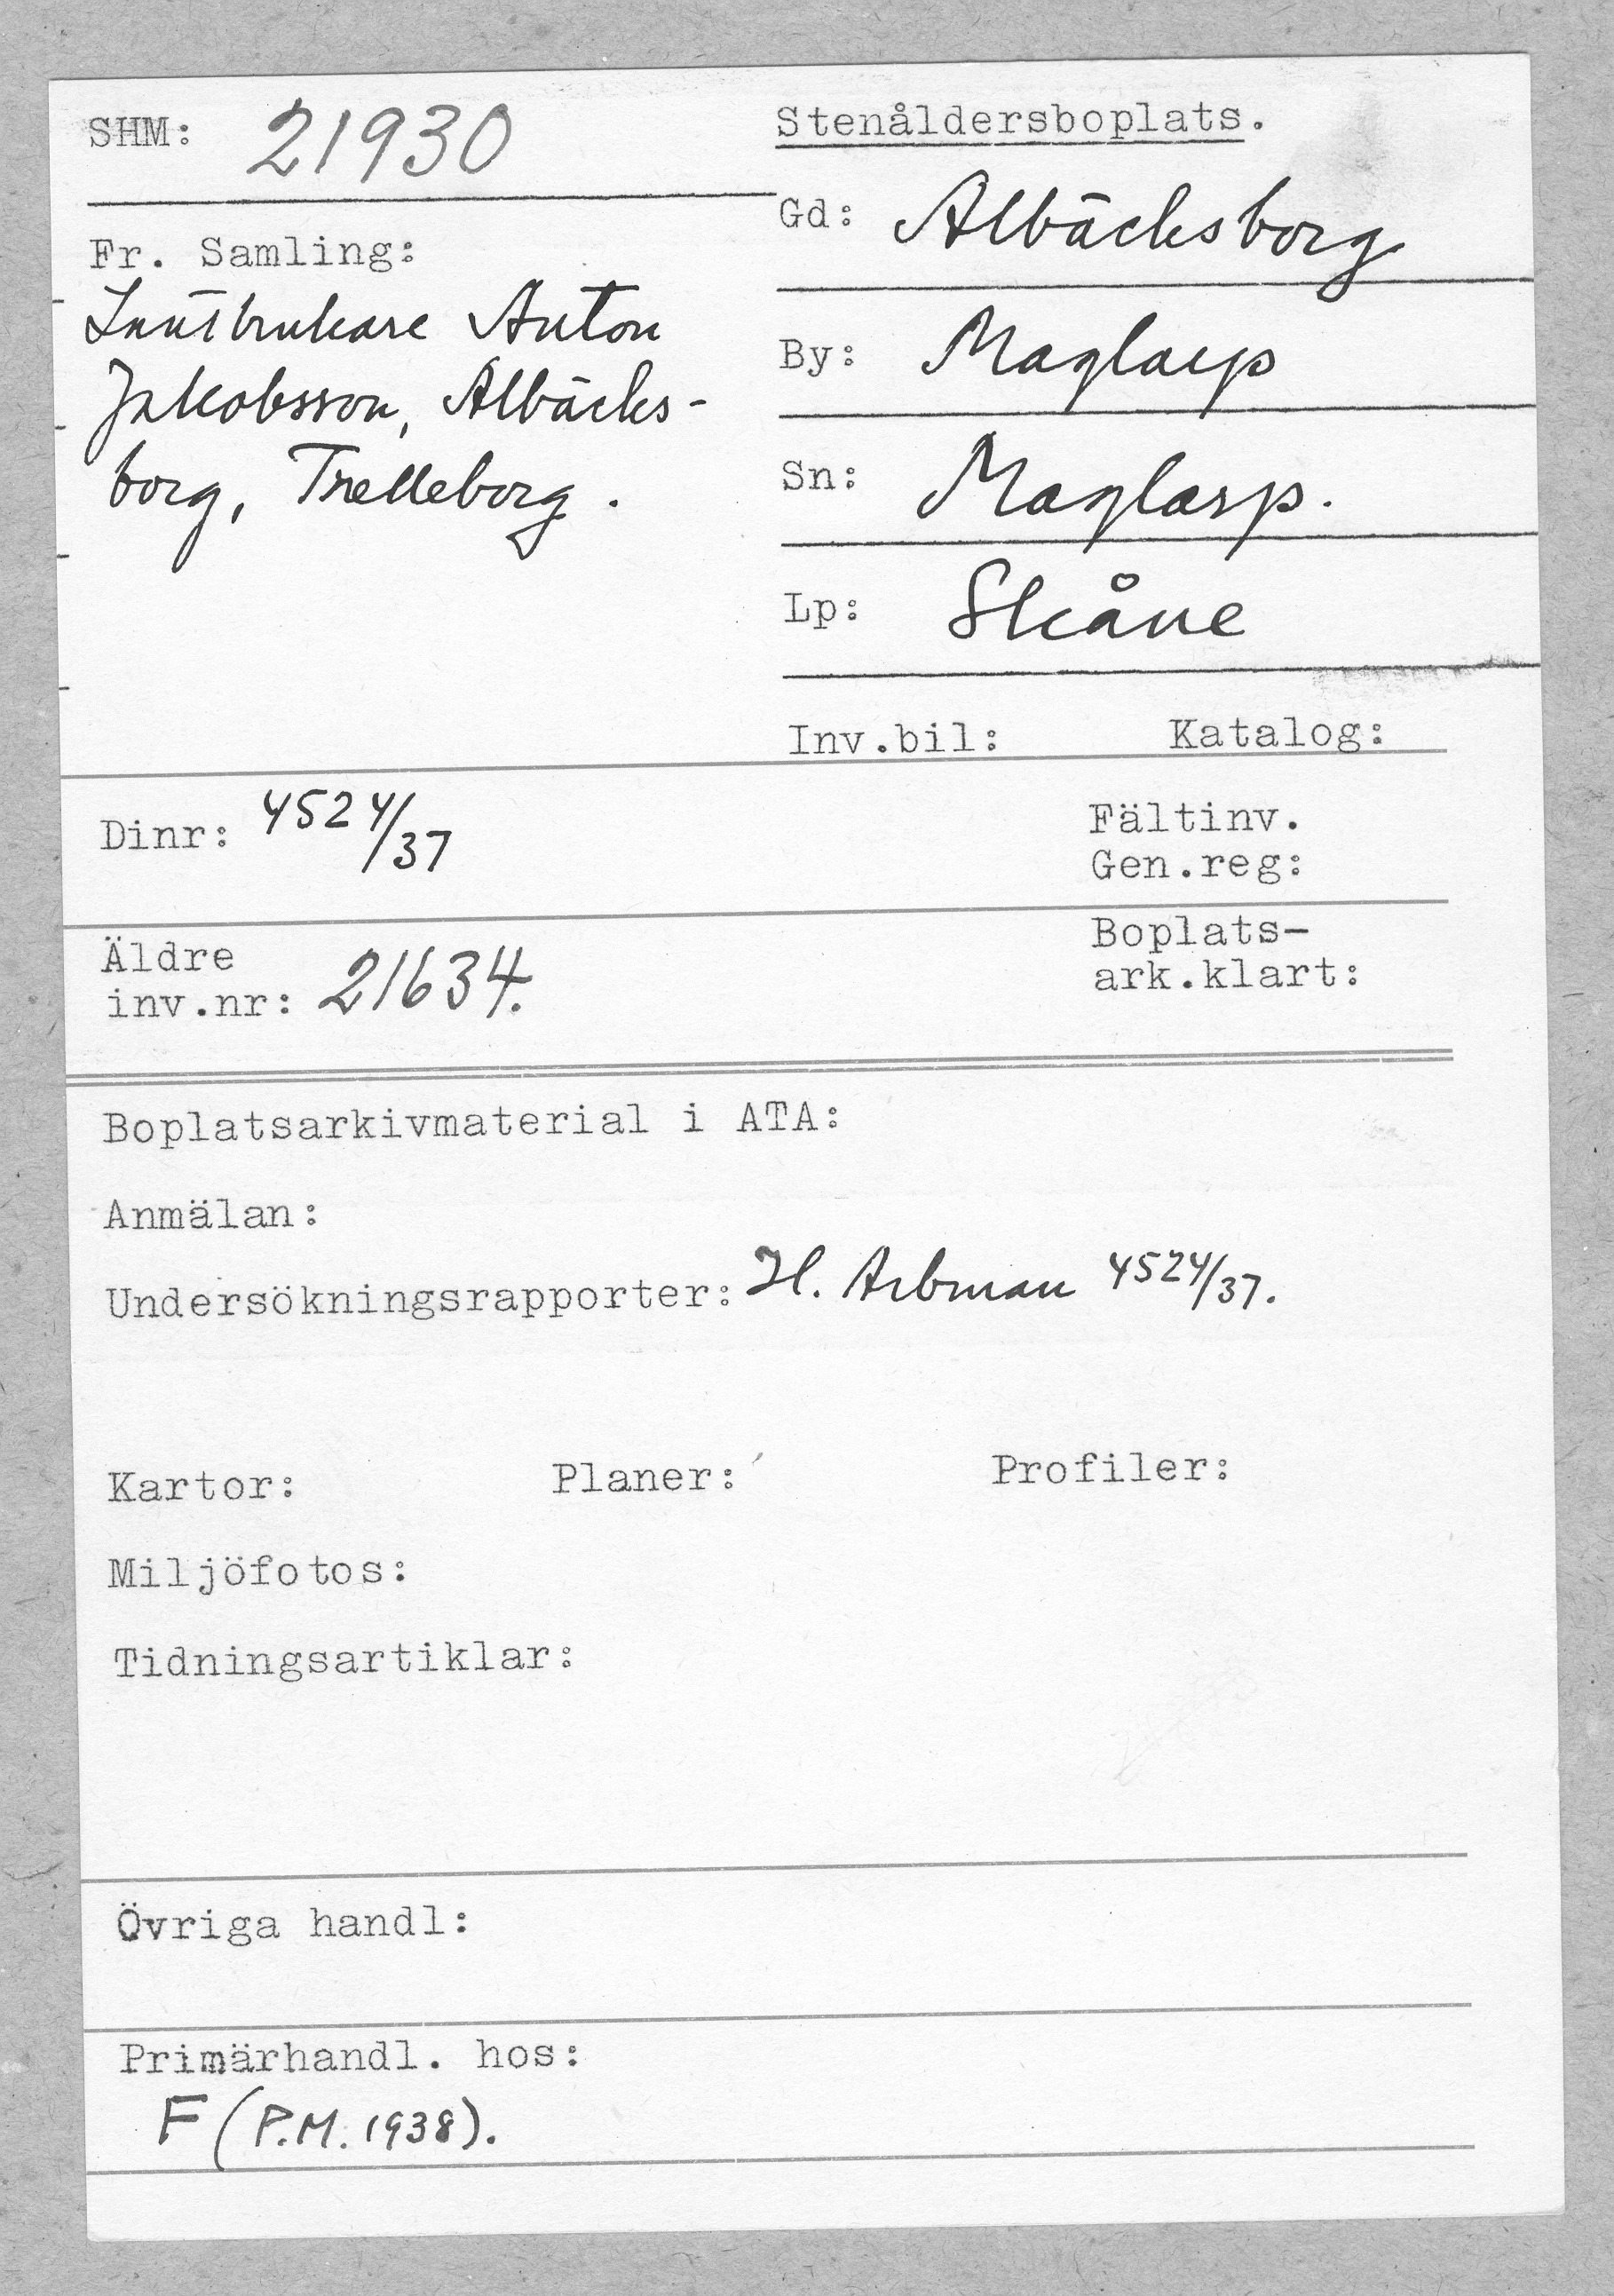 SHM: 21930
Fr. Samling:
Lantbrukare Anton
Jakobsson, Albäcks-
borg, Trelleborg.
Stenåldersboplats.
Gd: Albäcksborg
By: Maglarp
Sn: Maglarp.
Lp: Skåne
Inv.bil: Katalog:
Dinr: 4524/37
Fältinv.
Gen.reg:
Äldre
inv.nr: 21634.
Boplats-
ark.klart:
Boplatsarkivmaterial i ATA:
Anmälan:
Undersökningsrapporter: H. Arbman 4524/37.
Kartor: Planer: Profiler:
Miljöfotos:
Tidningsartiklar:
Övriga handl:
Primärhandl. hos:
F (P.M. 1938).